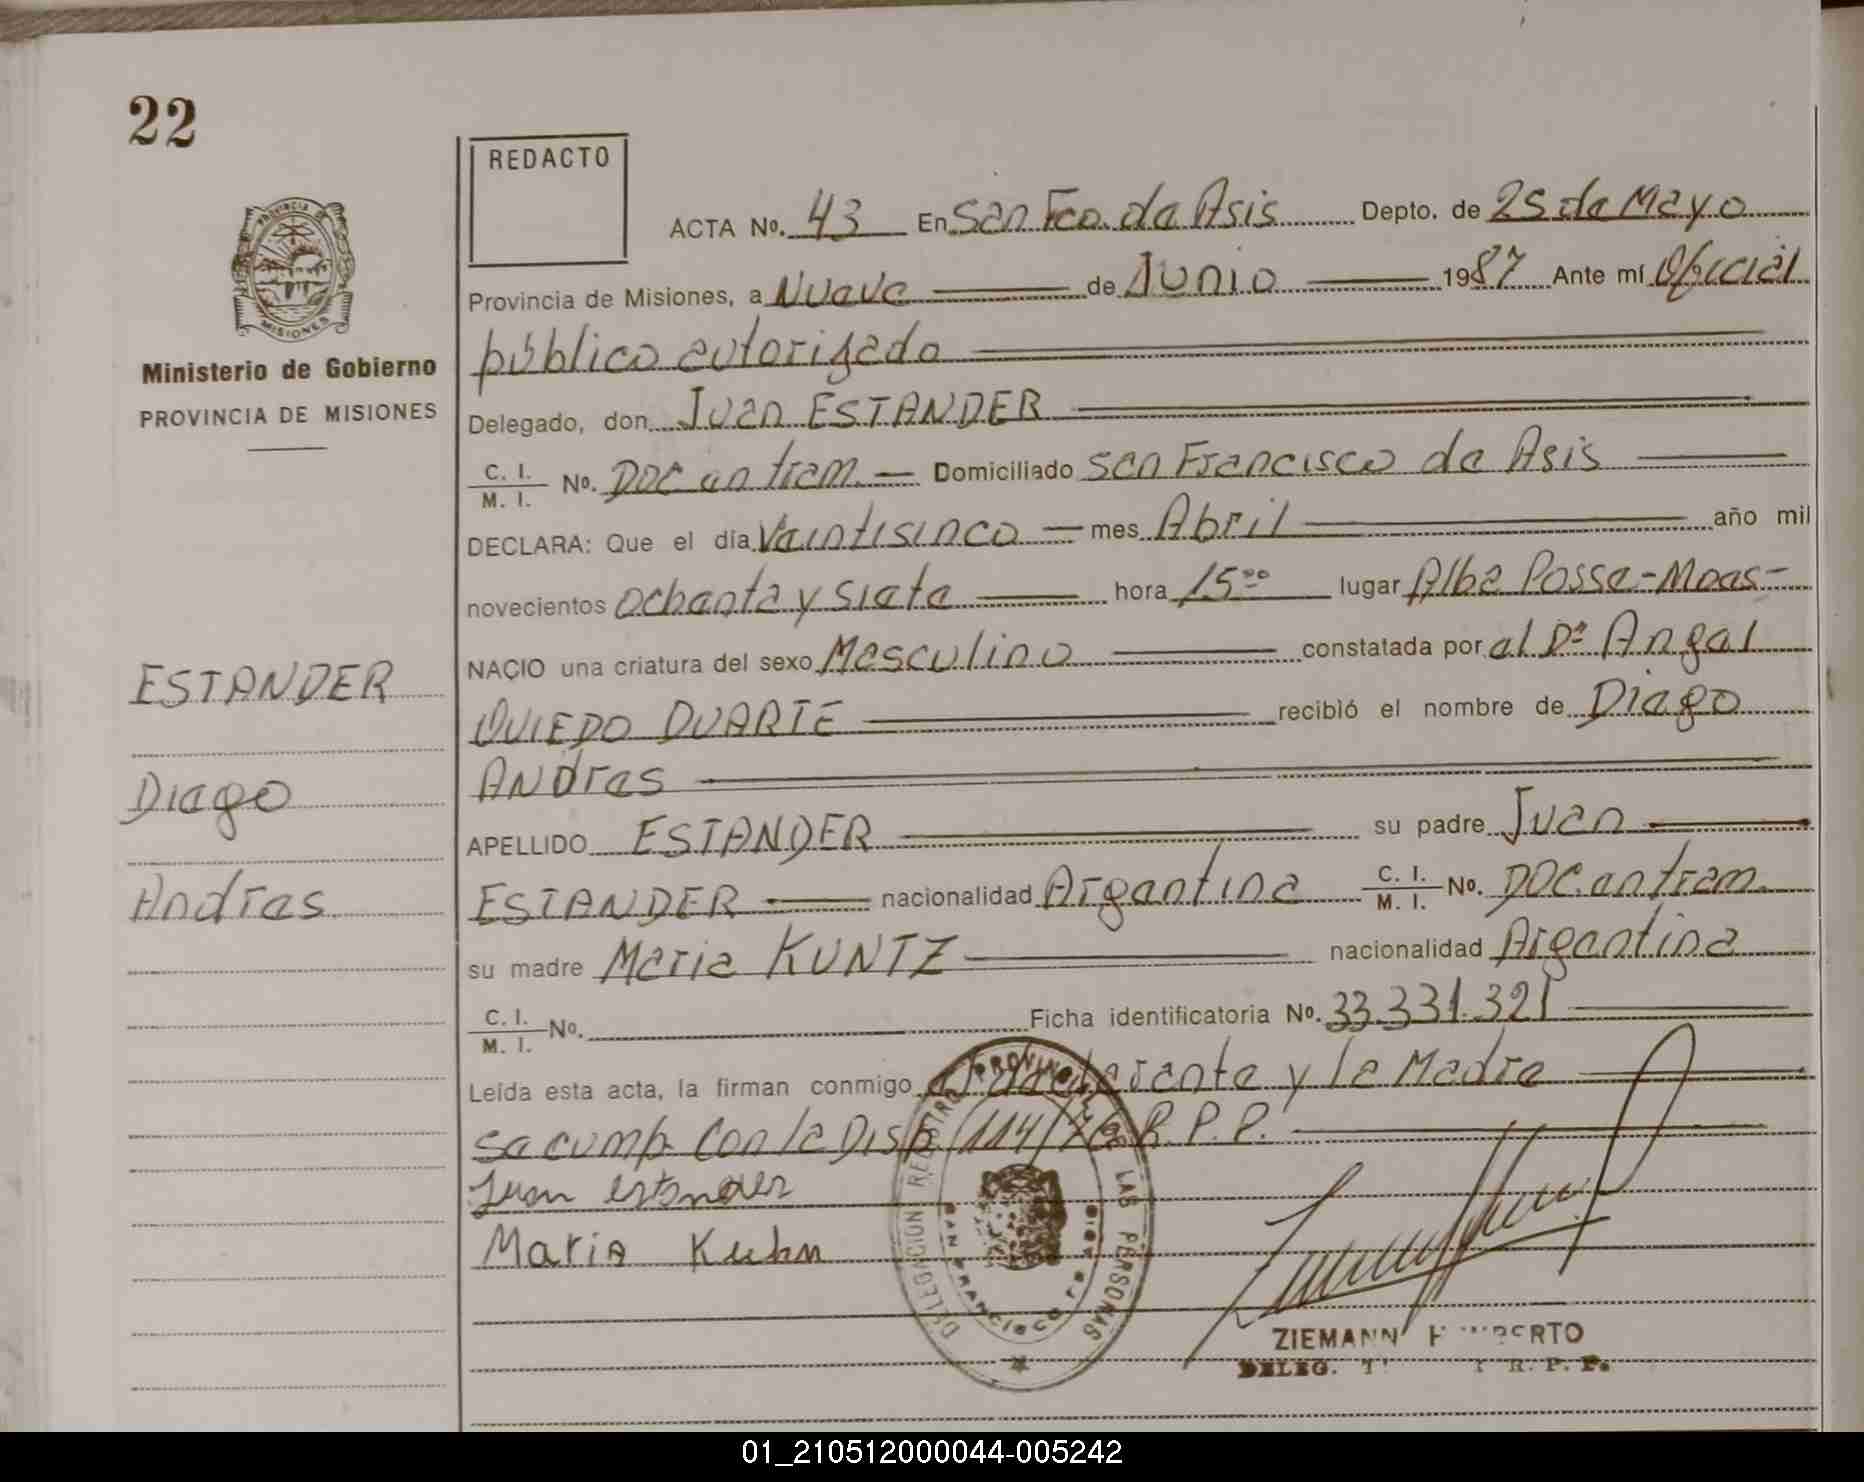 22
REDACTO
ACTA Nº. 43 En San Fco. de Asis Depto. de 25 de Mayo
Provincia de Misiones, a Nueve de Junio 1987 Ante mí Oficial
público autorizado
Delegado, don Juan ESTANDER
C. I. / M. I. No. Doc en tram. Domiciliado San Francisco de Asis
DECLARA: Que el día Veintisinco mes Abril año mil
novecientos ochenta y siete hora 15 ºº lugar Alba Posse-Mnes-
NACIO una criatura del sexo Masculino constatada por el Dº Angel
OVIEDO DUARTE recibió el nombre de Diego
Andres
APELLIDO ESTANDER su padre Juan
ESTANDER nacionalidad Argentina C. I. / M. I. No. Doc. en tram.
su madre Maria KUNTZ nacionalidad Argentina
C. I. / M. I. No. Ficha identificatoria No. 33.331.321
Leída esta acta, la firman conmigo el declarante y la Madre
se cump. Con la Disp. 114/76 R. P. P.
Juan estander
Maria Kuhn
PROVINCIA DE MISIONES
Ministerio de Gobierno
PROVINCIA DE MISIONES
ESTANDER
Diego
Andres
DELEGACION REGISTRO PROVINCIAL DE LAS PERSONAS
SAN FRANCISCO DE ASIS
ZIEMANN H MBERTO
DELEG. R. P. P.
01_210512000044-005242